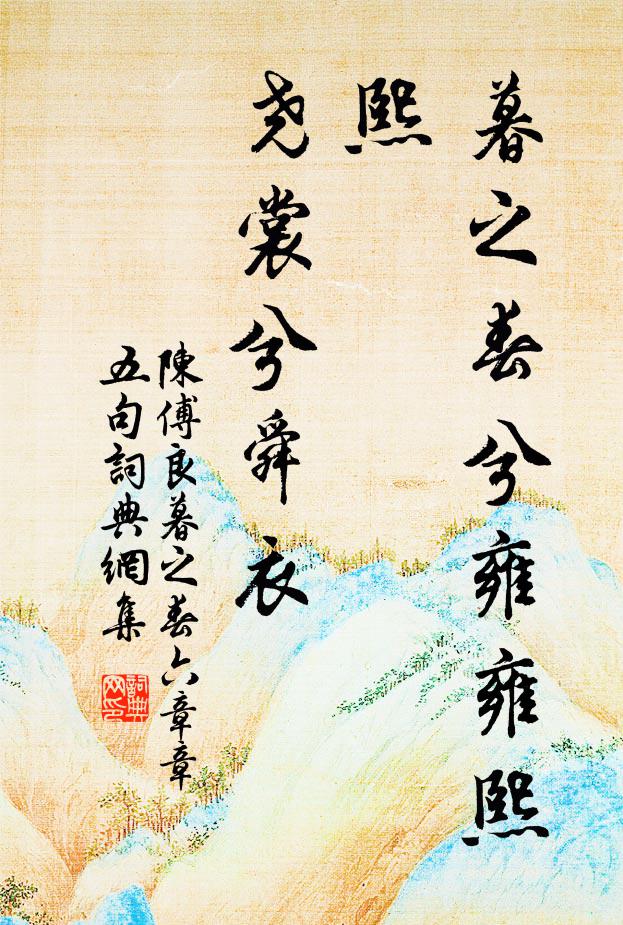 暮之春兮雍雍熙
熙
尧裳兮舜衣
陳傅良暮之春六章章
五句詞典網集
詞典
网印